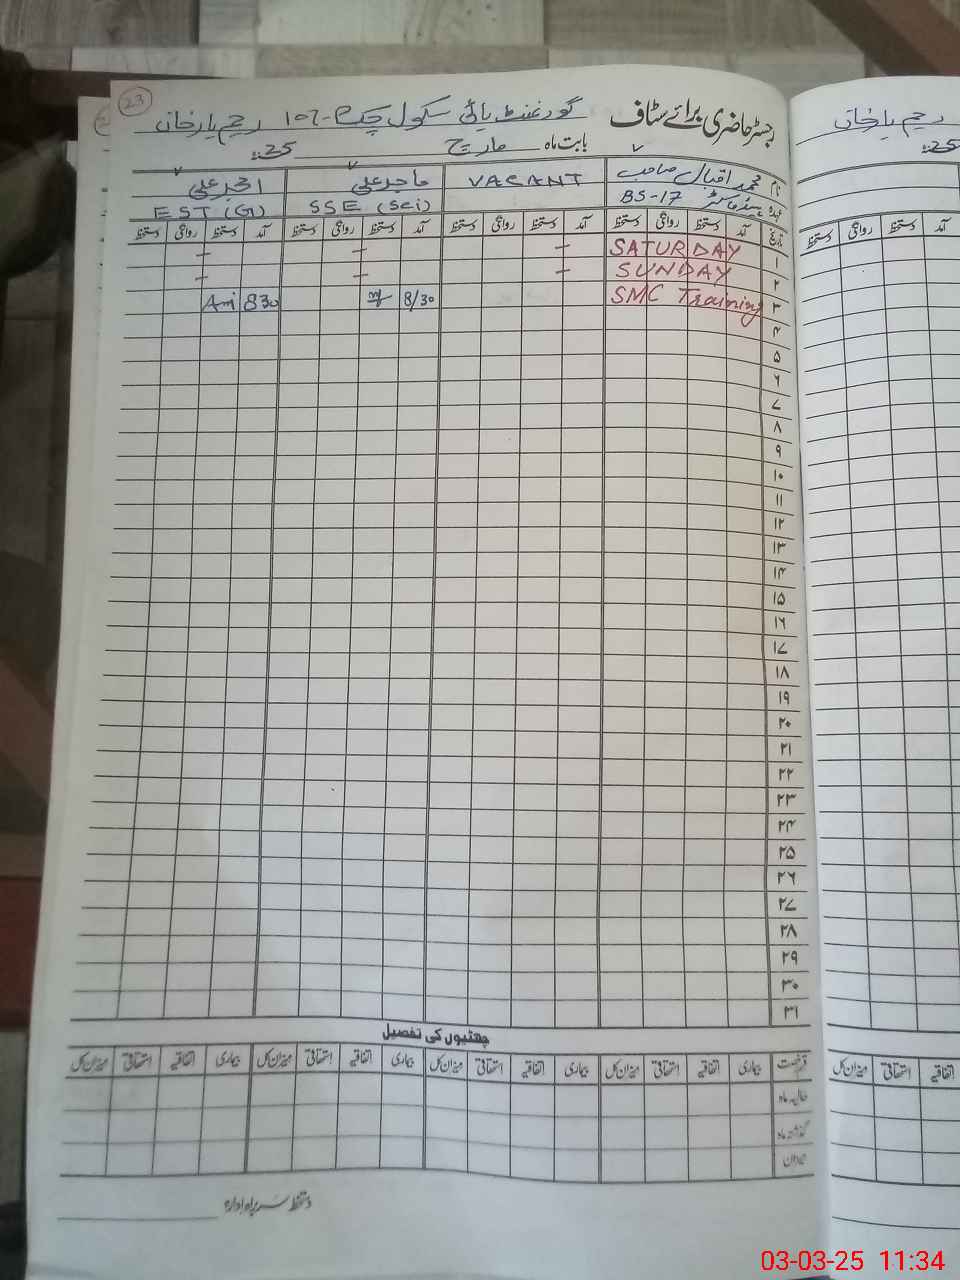 23
رجسٹر حاضری برائے سٹاف گورنمنٹ ہائی سکول چک 107-P رحیم یار خان
بابت ماہ مارچ 25ء
نام محمد اقبال صاحب VACANT ماجد علی امجد علی
عہدہ ہیڈ ماسٹر BS-17 SSE (Sci) EST (G)
تاریخ آمد دستخط روانگی دستخط آمد دستخط روانگی دستخط آمد دستخط روانگی دستخط آمد دستخط روانگی دستخط
۱ SATURDAY – – –
۲ SUNDAY – – –
۳ SMC Training 8/30 830
۴
۵
۶
۷
۸
۹
۱۰
۱۱
۱۲
۱۳
۱۴
۱۵
۱۶
۱۷
۱۸
۱۹
۲۰
۲۱
۲۲
۲۳
۲۴
۲۵
۲۶
۲۷
۲۸
۲۹
۳۰
۳۱
چھٹیوں کی تفصیل
رخصت بیماری اتفاقیہ استحقاقی میزان کل بیماری اتفاقیہ استحقاقی میزان کل بیماری اتفاقیہ استحقاقی میزان کل بیماری اتفاقیہ استحقاقی میزان کل
حالیہ ماہ
گذشتہ ماہ
میزان
دستخط سربراہ ادارہ
رحیم یار خان
25ء
آمد دستخط روانگی دستخط
اتفاقیہ استحقاقی میزان کل
03-03-25 11:34